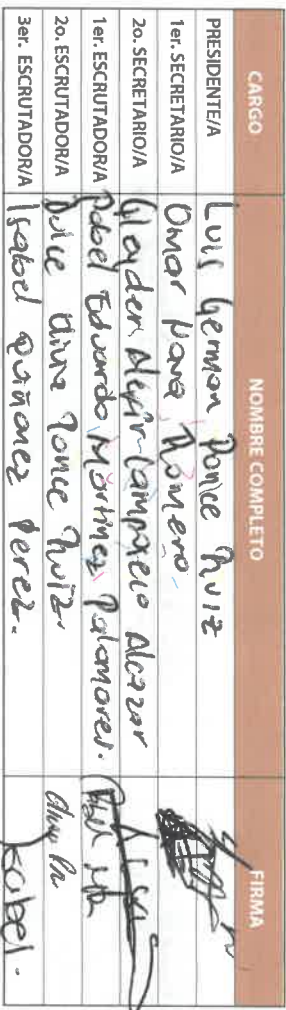 CARGO NOMBRE COMPLETO FIRMA
PRESIDENTE/A Luis German Ponce Ruiz
1er. SECRETARIO/A Omar Nava Romero
2o. SECRETARIO/A Alcazar
1er. ESCRUTADOR/A Eduardo Martinez Palomares.
2o. ESCRUTADOR/A Dulce Ponce Ruiz.
3er. ESCRUTADOR/A Isabel Quiñonez Perez. Isabel.